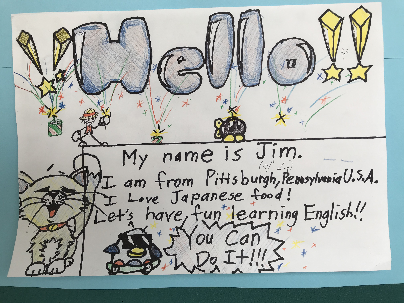 !!Hello!!
My name is Jim.
I am from Pittsburgh, Pennsylvania U.S.A.
I Love Japanese food!
Let's have fun learning English!!
You Can
Do It!!!